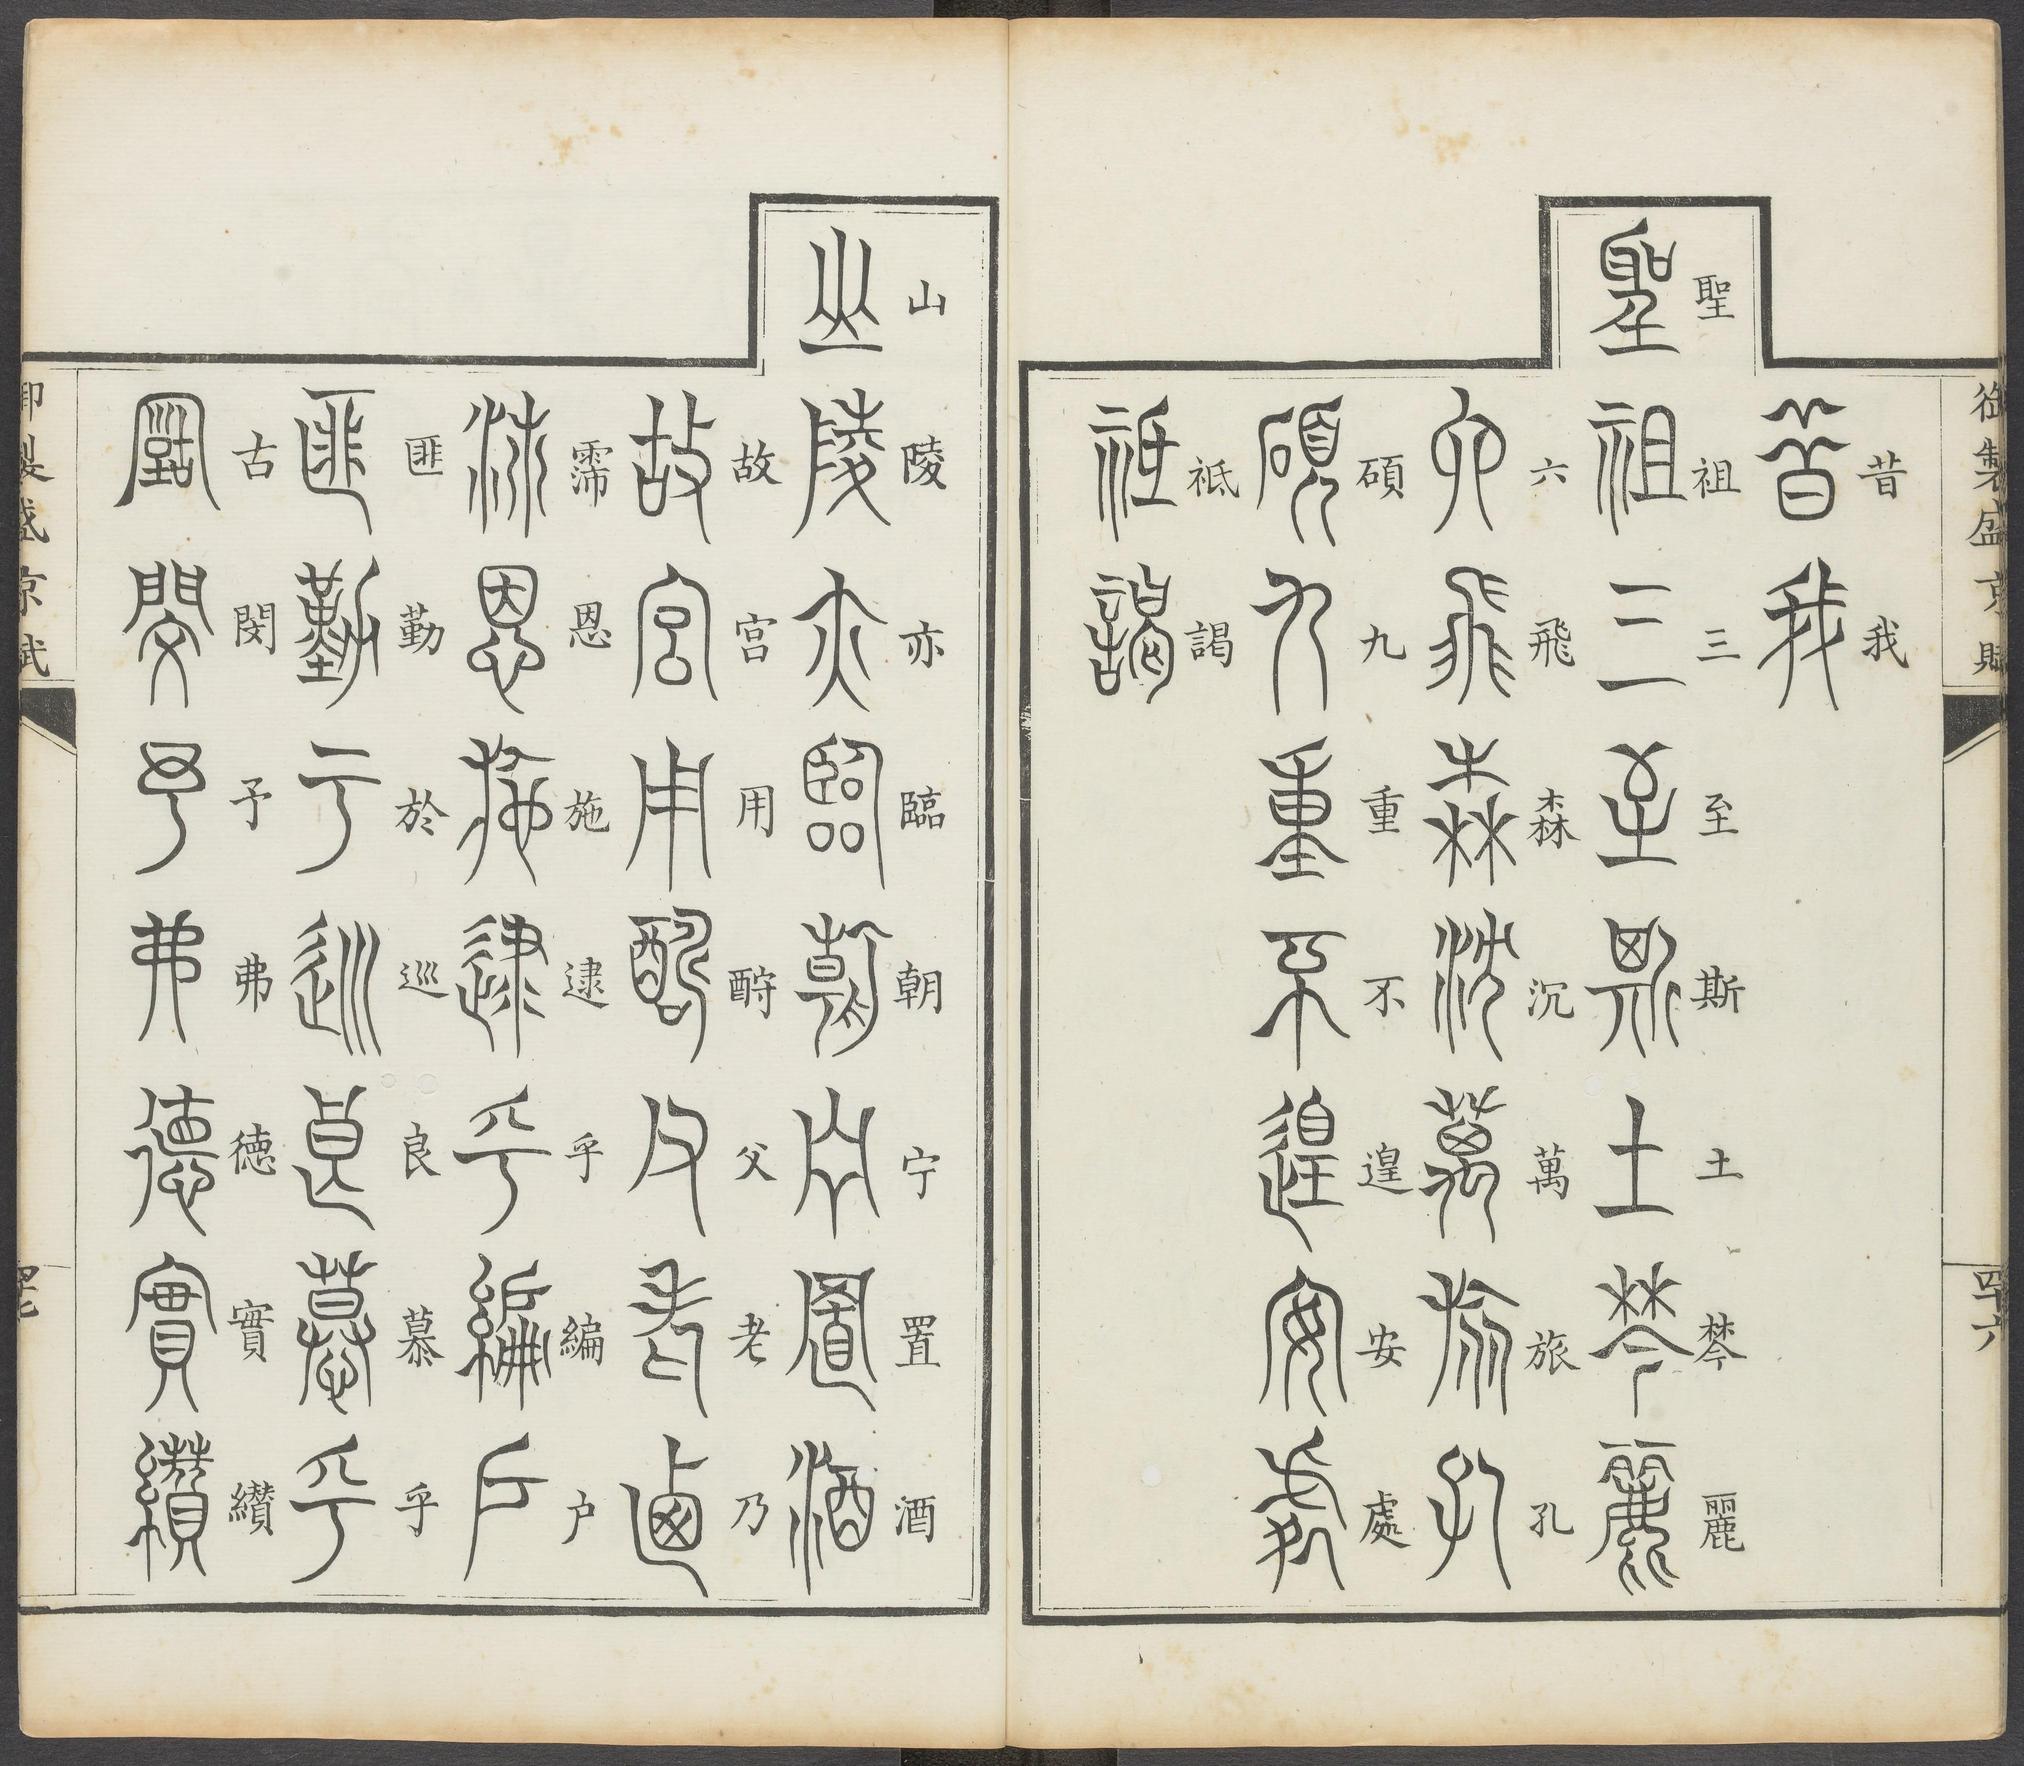 御製盛京賦
四十六
昔我
聖祖三至斯土棽麗
六飛森沉萬旅孔
碩九重不遑安處
祗謁
山陵亦臨朝宁置酒
故宫用酧父老乃
霈恩施逮乎編户
匪勤於巡良慕乎
古閔予弗德實纘
御製盛京賦